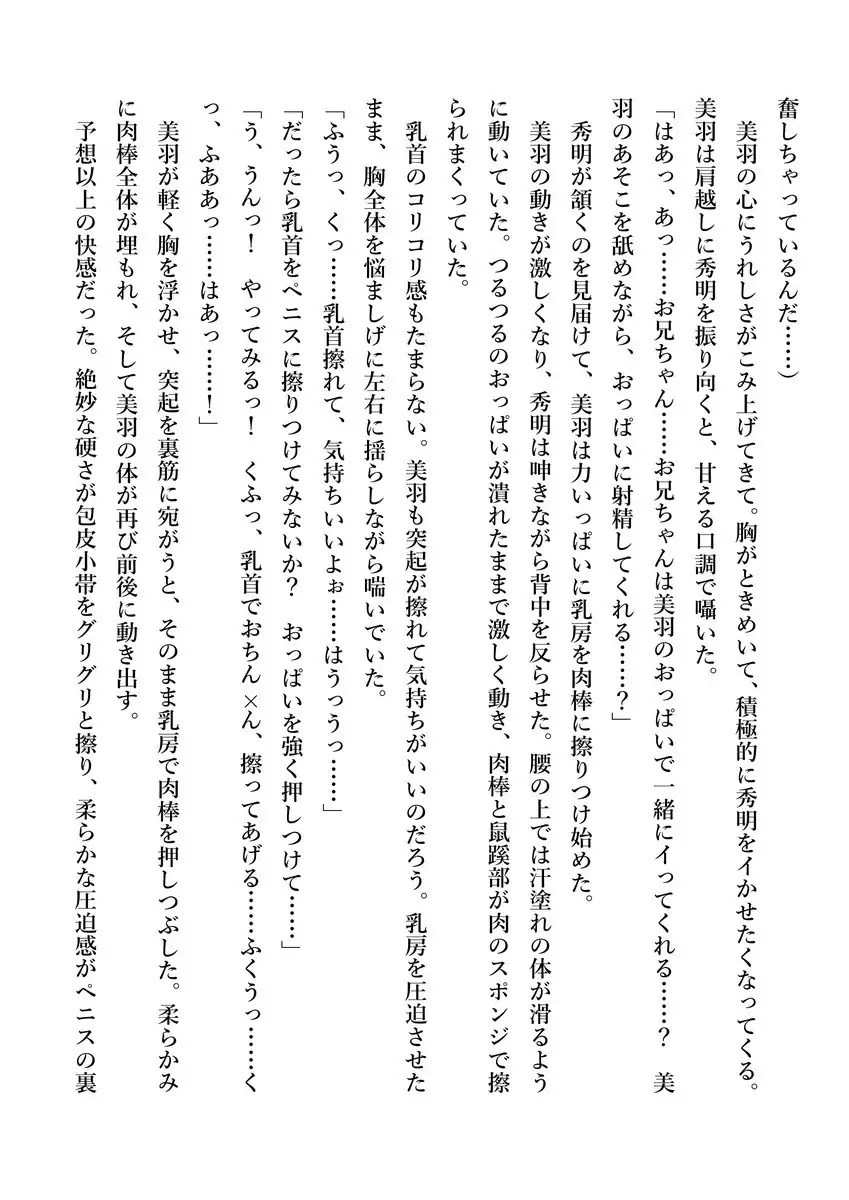 奮しちゃっているんだ……）
　美羽の心にうれしさがこみ上げてきて。胸がときめいて、積極的に秀明をイかせたくなってくる。
美羽は肩越しに秀明を振り向くと、甘える口調で囁いた。
「はあっ、あっ……お兄ちゃん……お兄ちゃんは美羽のおっぱいで一緒にイってくれる……？　美
羽のあそこを舐めながら、おっぱいに射精してくれる……？」
　秀明が頷くのを見届けて、美羽は力いっぱいに乳房を肉棒に擦りつけ始めた。
　美羽の動きが激しくなり、秀明は呻きながら背中を反らせた。腰の上では汗塗れの体が滑るよう
に動いていた。つるつるのおっぱいが潰れたままで激しく動き、肉棒と鼠蹊部が肉のスポンジで擦
られまくっていた。
　乳首のコリコリ感もたまらない。美羽も突起が擦れて気持ちがいいのだろう。乳房を圧迫させた
まま、胸全体を悩ましげに左右に揺らしながら喘いでいた。
「ふうっ、くっ……乳首擦れて、気持ちいいよぉ……はうっうっ……」
「だったら乳首をペニスに擦りつけてみないか？　おっぱいを強く押しつけて……」
「う、うんっ！　やってみるっ！　くふっ、乳首でおちん×ん、擦ってあげる……ふくうっ……く
っ、ふああっ……はあっ……！」
　美羽が軽く胸を浮かせ、突起を裏筋に宛がうと、そのまま乳房で肉棒を押しつぶした。柔らかみ
に肉棒全体が埋もれ、そして美羽の体が再び前後に動き出す。
　予想以上の快感だった。絶妙な硬さが包皮小帯をグリグリと擦り、柔らかな圧迫感がペニスの裏